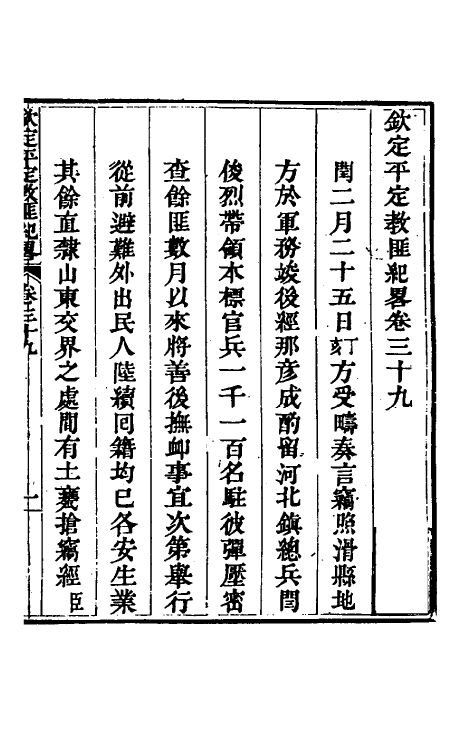 欽定平定教匪紀畧卷三十九
閏二月二十五日丁亥方受疇奏言竊照滑縣地
方於軍務竣後經那彥成酌留河北鎮總兵閆
俊烈帶領本標官兵一千一百名駐彼彈壓密
查餘匪數月以來將善後撫卹事宜次第舉行
從前避難外出民人陸續回籍均已各安生業
其餘直隸山東交界之處間有土棍搶竊經臣
欽定平定教匪紀畧 卷三十九 一